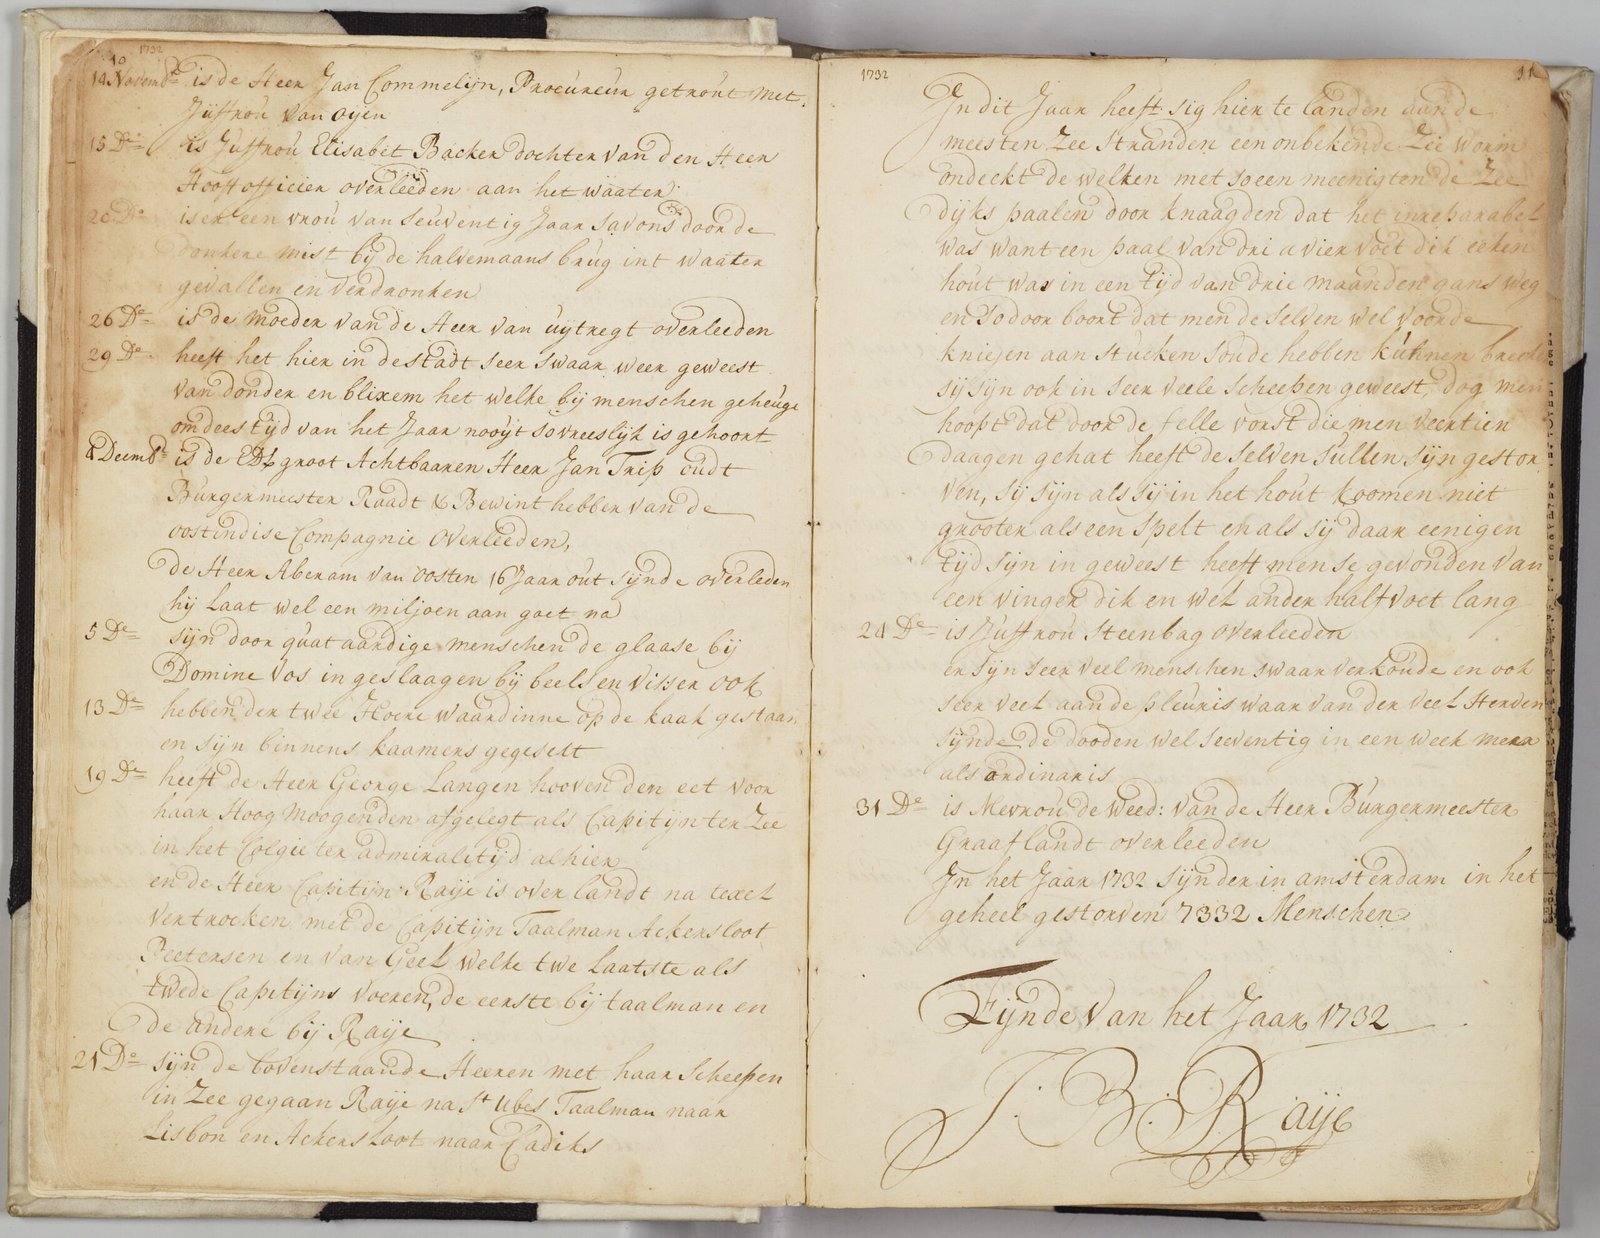 10 1732
14 Novembr is de Heer Jan Commelijn, Procureur getrout met
Jùffroù van oijen
15 Do is Jùffroù Elisabet Backer dochter van den Heer
Hooft officier overleeden aan het waater
20 Do is er een vroù van seùventig Jaar savons door de
donkere mist bij de halvemaans brug int waater
gevallen en verdronken
26 De is de moeder van de Heer van ùijtregt overleeden
29 De heeft het hier in de stadt seer swaar weer geweest
van donder en blixem het welke bij menschen geheùge
om dees tijd van het Jaar nooijt so vreeslijk is gehoort
4 Deembr is de Edle groot Achtbaaren Heer Jan Trip oùdt
Bùrgermeester Raadt & Bewinthebber van de
oostindise Compagnie overleeden,
de Heer Aberam van oosten 16 Jaar oùt sijnde overleden
hij Laat wel een miljoen aan goet na
5 De sijn door qùat aardige menschen de glaase bij
Domine vos in geslaagen bij beels en visser ook
13 De hebben der twee Hoere waardinne op de kaak gestaan
en sijn binnens kaamers gegeselt
19 De heeft de Heer George Langen hooven den eet voor
haar Hoog moogenden afgelegt als Capitijn ter Zee
in het Colgie ter admiralitijd alhier
en de Heer Capitijn Raije is over landt na texel
vertrocken met de Capitijn Taalman Ackersloot
Peetersen en van Geel welke twe laatste als
twede Capitijns voeren, de eerste bij taalman en
de andere bij Raije
21 Do sijn de bovenstaande Heeren met haar scheepen
in Zee gegaan Raije na St Ubes Taalman naar
Lisbon en Ackersloot naar Cadiks
1732 11
In dit Jaar heeft sig hier te landen aan de
meesten Zee stranden een onbekende Zee worm
ondeckt de welken met so een meenigten de Zee
dijks paalen door knaagden dat het inreparabel
was want een paal van dri a vier voet dik eeken
hout was in een tijd van drie maanden gans weg
en so door boort dat men de selven wel voor de
kniejen aan stùcken soùde hebben kùnnen breeke
sij sijn ook in seer veele scheepen geweest, dog men
hoopt dat door de felle vorst die men veertien
daagen gehat heeft de selven sùllen sijn gestor
ven, sij sijn als sij in het hout koomen niet
grooter als een spelt en als sij daar eenigen
tijd sijn in geweest heeft men se gevonden van
een vinger dik en wel ander half voet lang
24 De is Jùffroù Steenbag overleeden
er sijn seer veel menschen swaar verkoùde en ook
seer veel aan de pleùris waar van der veel sterven
sijnde de dooden wel seeventig in een week meer
als ordinaris
31 De is Mevroù de weed: van de Heer Bùrgermeester
Graaflandt overleeden
In het Jaar 1732 sijn der in amsterdam in het
geheel gestorven 7332 Menschen
Eijnde van het Jaar 1732
J: B: Raije